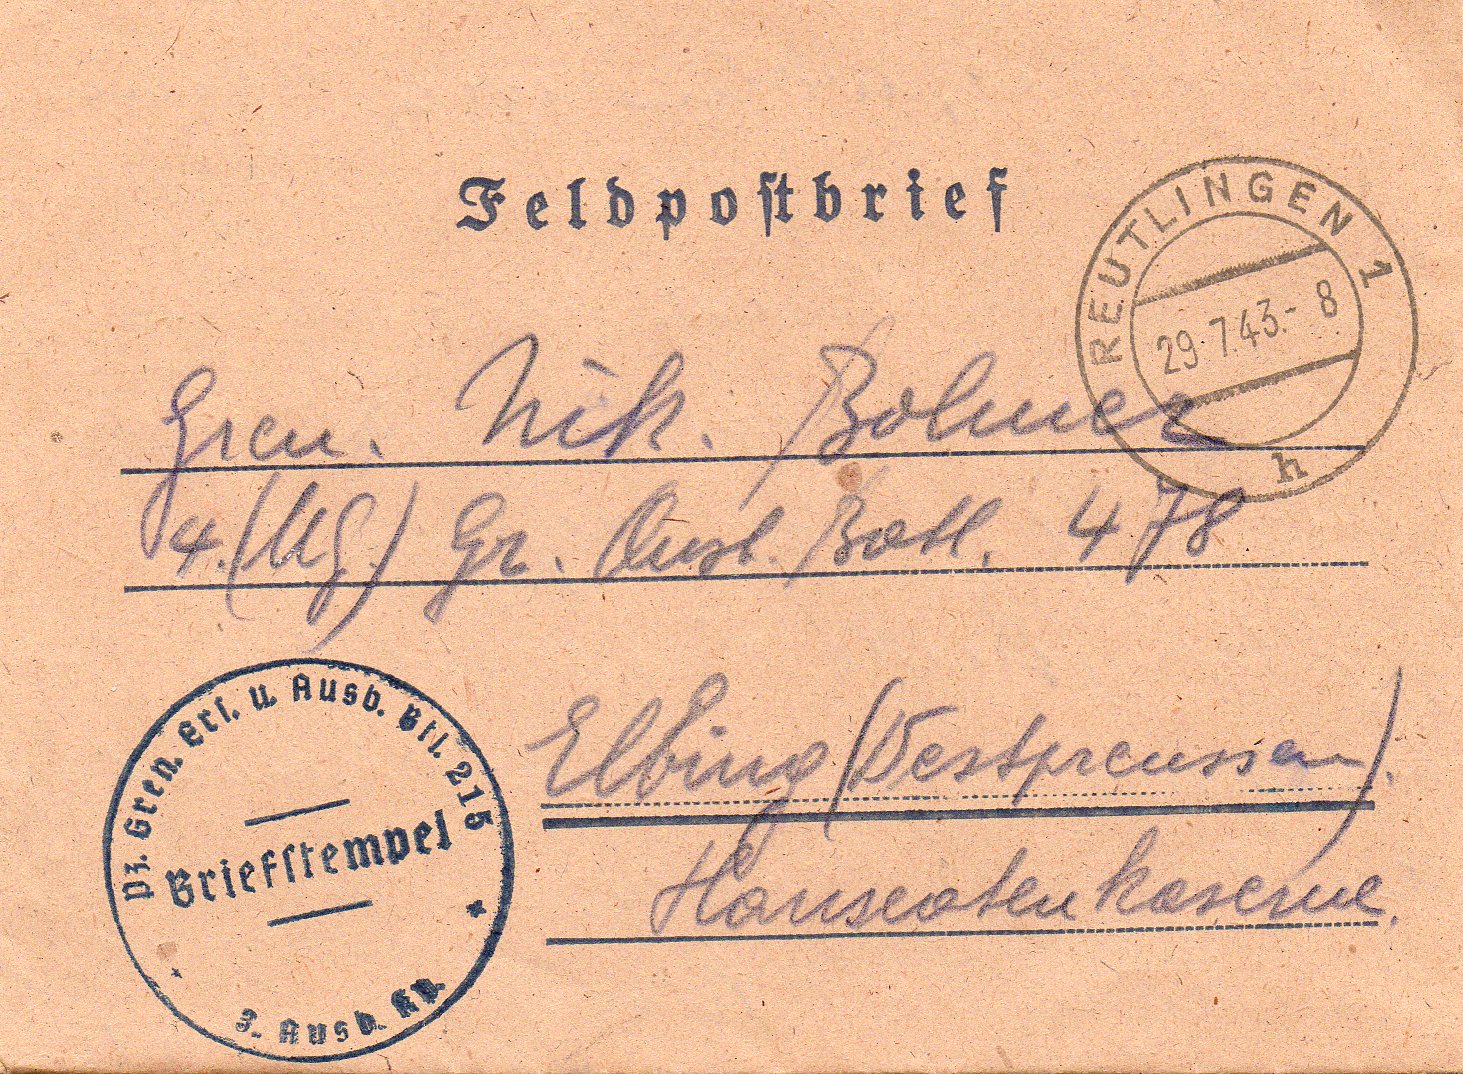 Feldpostbrief
REUTLINGEN 1
29.7.43.-8
h
Gren. Nik. Bolmer
4.(Mg.) Gr. Ausb. Batl. 478
Elbing (Westpreussen).
Hanseatenkaserne.
Pz. Gren. Ers. u. Ausb. Btl. 215
Briefstempel
3. Ausb. Kp.